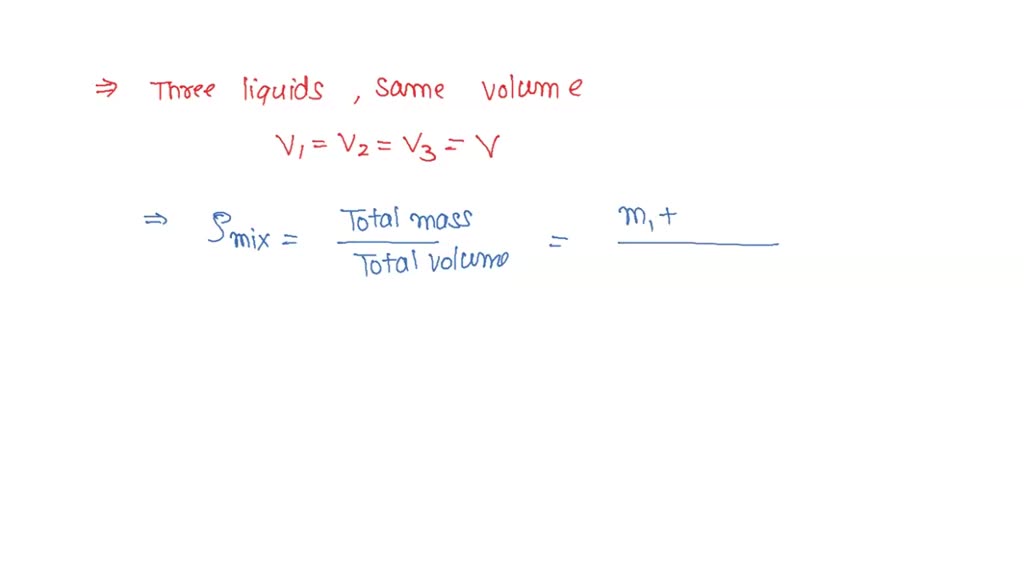 ⇒ Three liquids, same volume
V₁ = V₂ = V₃ = V
⇒ ρmix = Total mass / Total volume = m₁ +